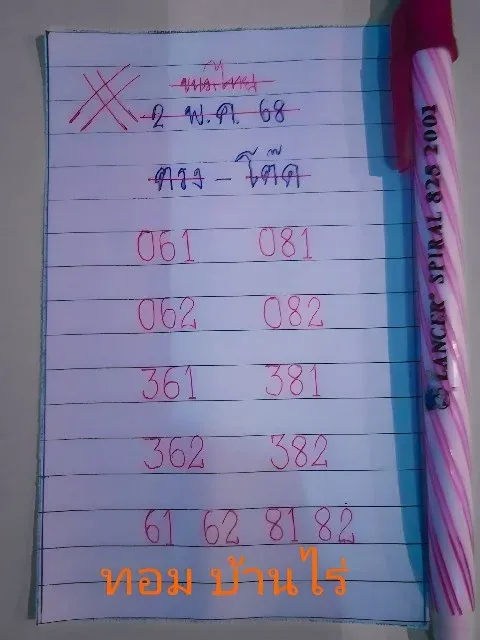 2 พ.ค. 68
ตรง - โต๊ด
061 081
062 082
361 381
362 382
61 62 81 82
ทอม บ้านไร่
LANCER SPIRAL 825 2001